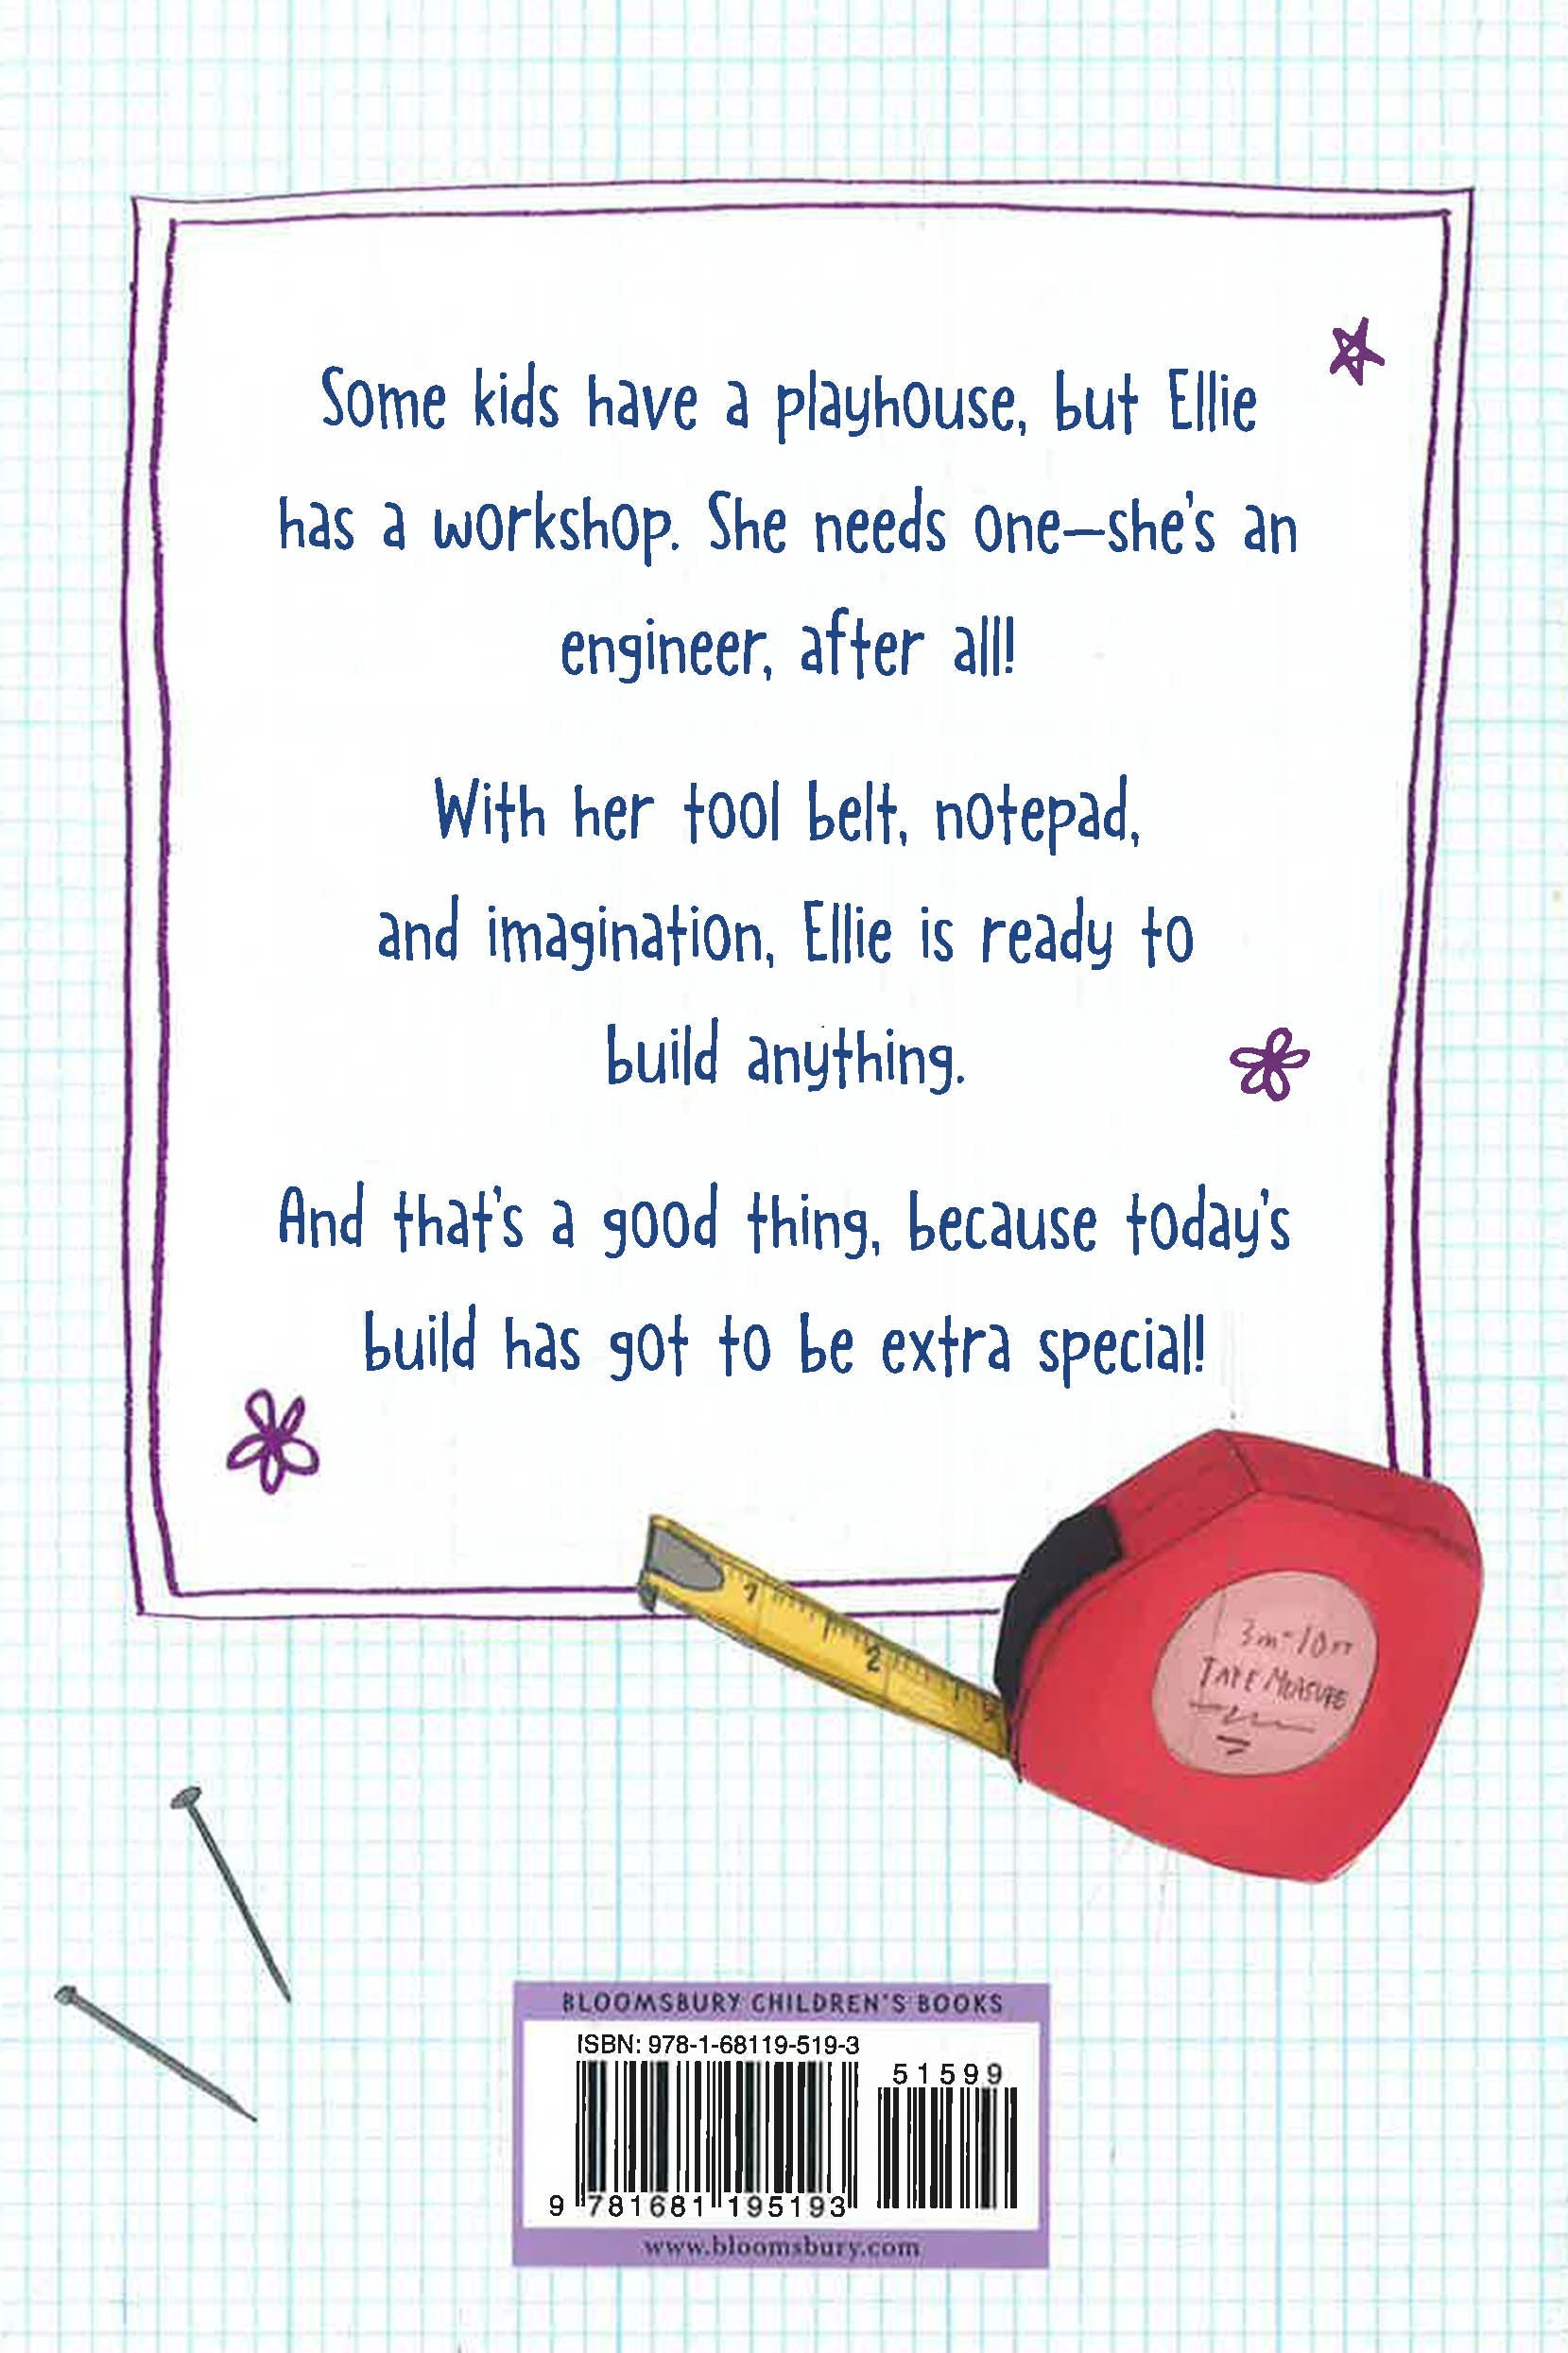 Some kids have a playhouse, but Ellie
has a workshop. She needs one—she's an
engineer, after all!
With her tool belt, notepad,
and imagination, Ellie is ready to
build anything.
And that's a good thing, because today's
build has got to be extra special!
1
2
3m-10FT
TAPE MEASURE
BLOOMSBURY CHILDREN'S BOOKS
ISBN: 978-1-68119-519-3
51599
9 781681 195193
www.bloomsbury.com